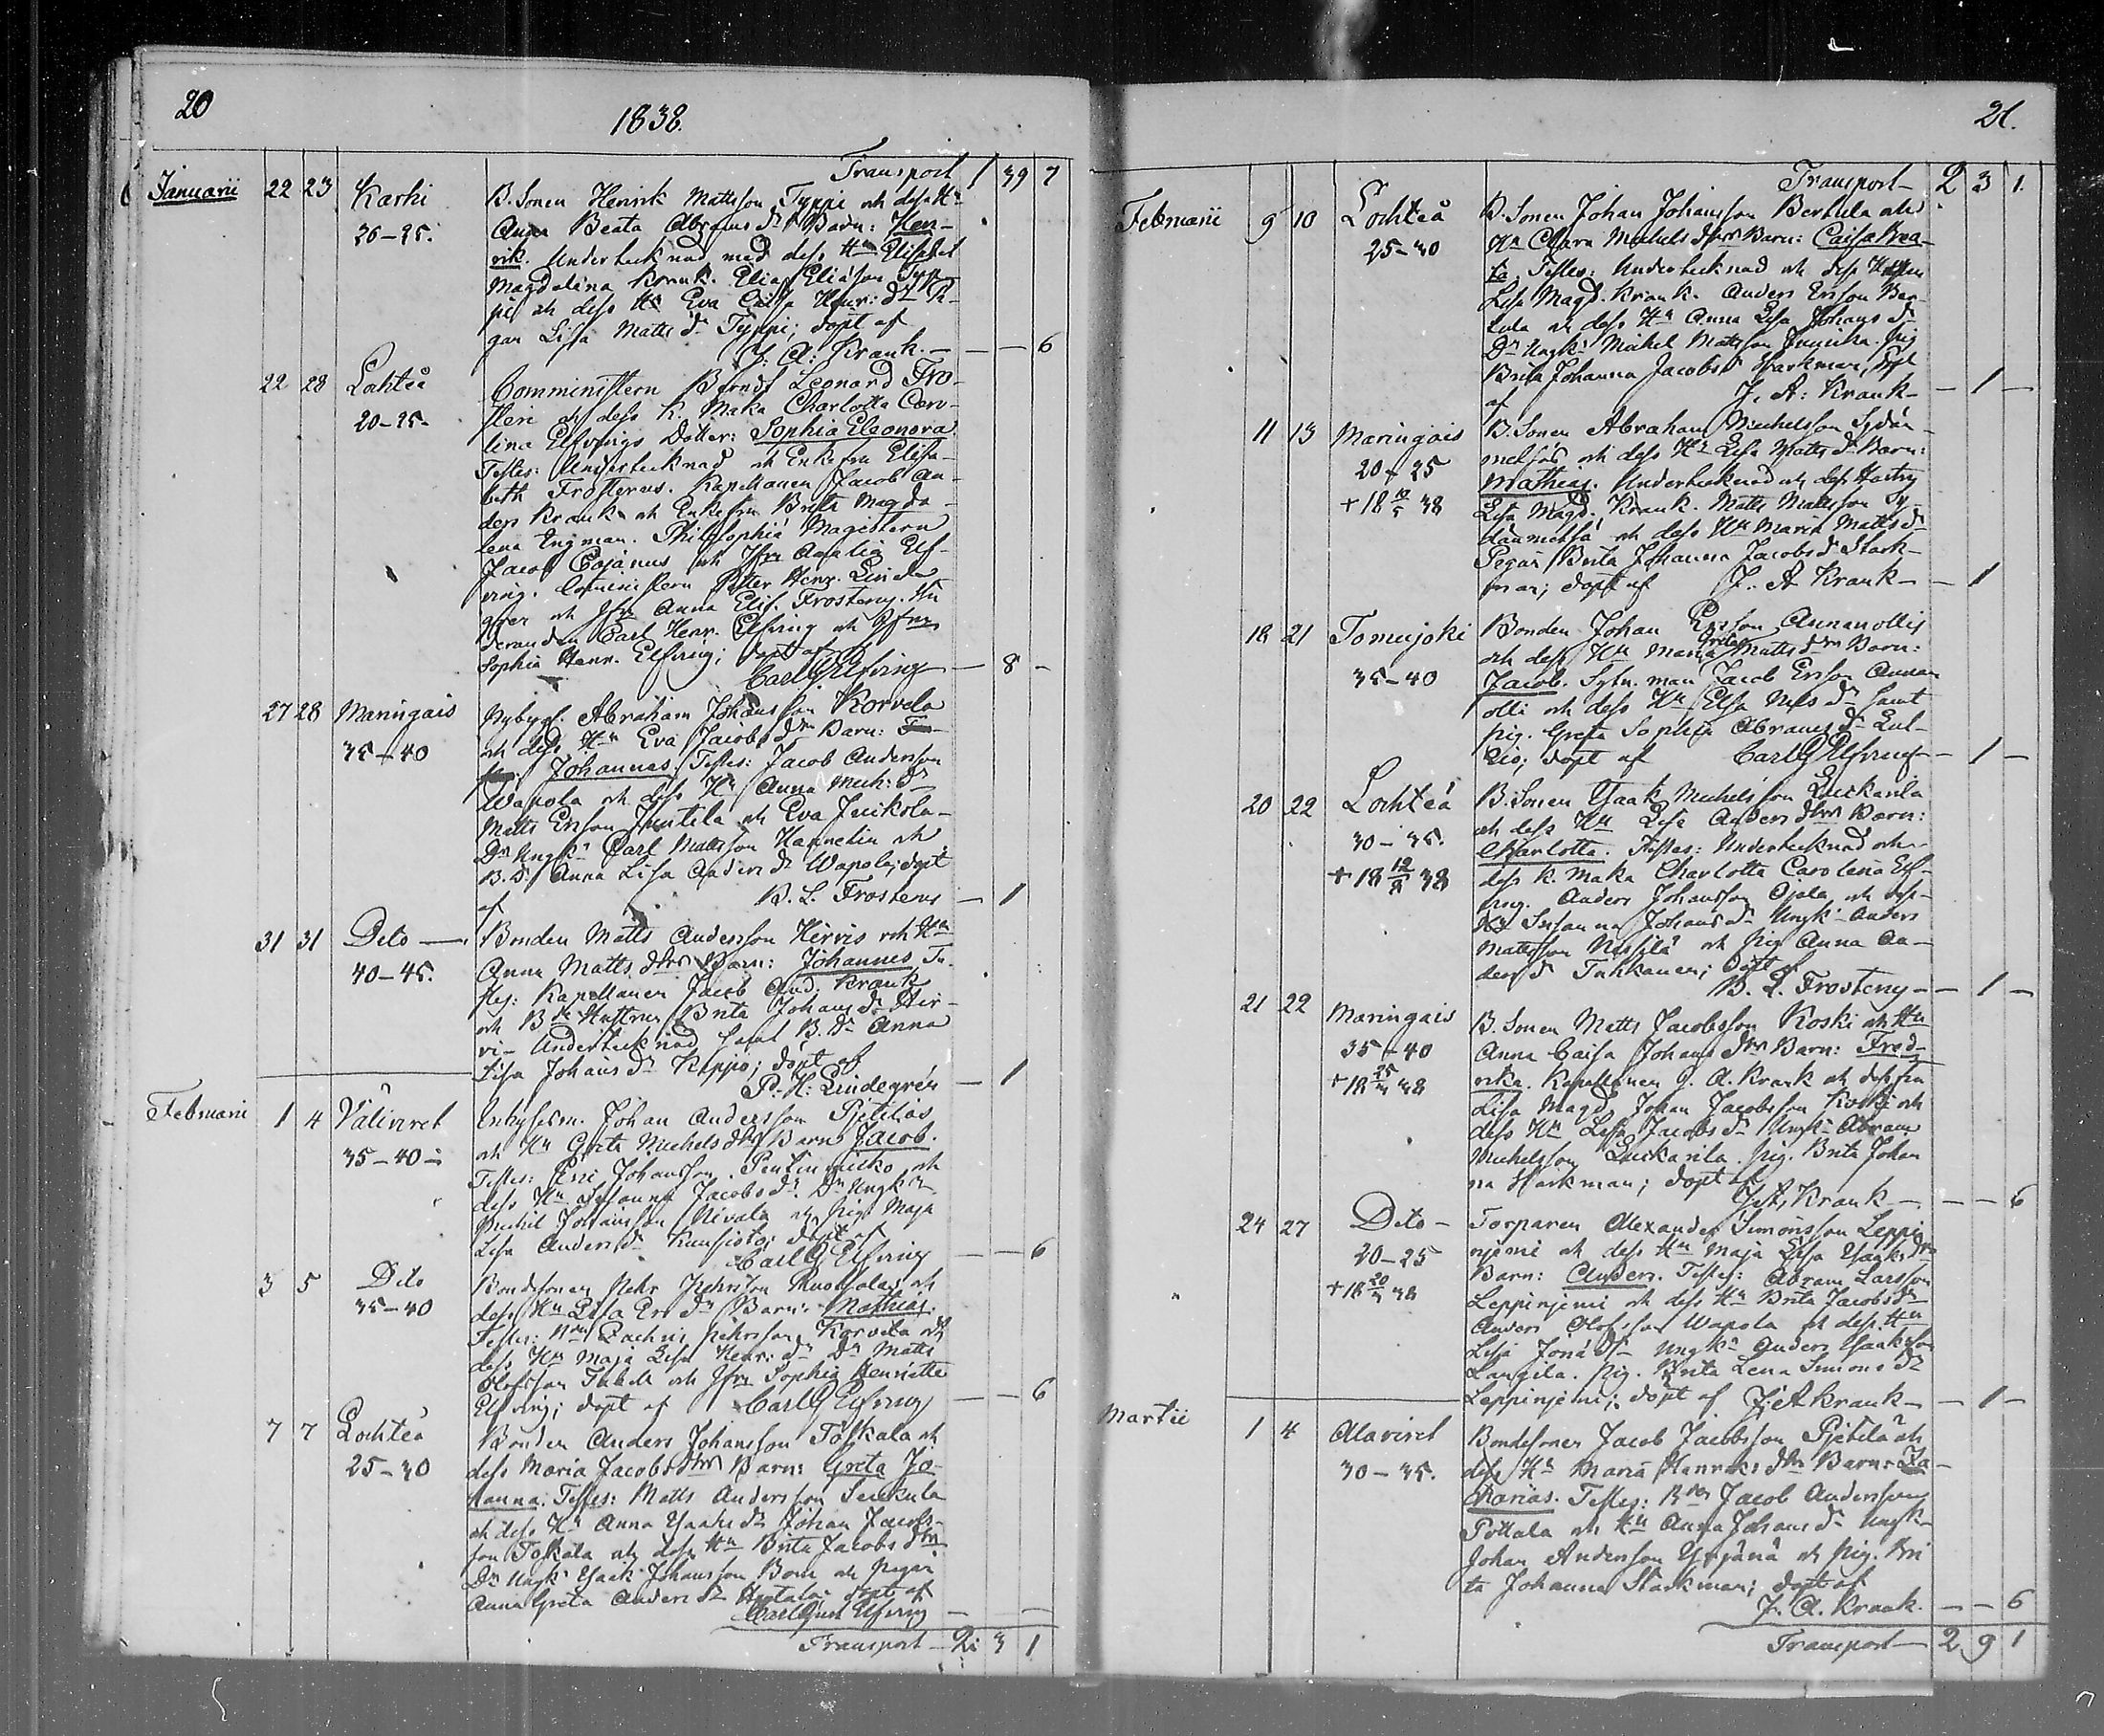 20
1838.
Transport 1 39 7
Januarii 22 23 Karhi B. Sonen Henrik Mattsson Typpi och dess Hu
26-25. Anna Beata Abrams dr Barn: Hen-
rik. Undertecknad med dess Hu Elisabet
Magdalena Krank. Elias Eliasson Typ-
pi och dess Hu Eva Caisa Henr: dr Pi-
gan Lisa Matts dr Typpi; döpt af
J. A: Krank. — — — 6
22 28 Lochteå Comministern Berndt Leonard Fro-
20-25. steri och dess K. Maka Charlotta Caro-
lina Elfvings Dotter: Sophia Eleonora.
Testes: Undertecknad och Enkefru Elisa-
beth Frosterus. Kapellanen Jacob An-
ders Krank och Enkefru Brita Magda-
lena Engman. Philosophiæ Magistern
Jacob Cajanus och Jfru Amalia Elf-
ving. Comministern Petter Henr. Linde-
gren och Jfru Anna Elis. Frosterus. Stu
deranden Carl Henr. Elfving och Jfru
Sophia Henr. Elfving; döpt af
Carl G Elfving — 8 -
27 28 Maringais Nybygg. Abraham Johansson Korvela
35-40 och dess Hu Eva Jacobs dr Barn:
Johannes Testes: Jacob Andersson
Wapola och dess Hu Anna Mich: dr
Matts Ersson Juntila och Eva Juckola-
Dr Ungk: Carl Mattsson Hannelin och
B. D. Anna Lisa Anders dr Wapola; döpt
af B. L. Frosterus — 1
31 31 Dito — Bonden Matts Andersson Hirvis och Hu
40-45. Anna Matts dtrs Barn: Johannes Te-
stes: Kapellanen Jacob And. Krank
och Bde Hustrun Brita Johans dr Hir-
vi- Undertecknad samt B. Dr Anna
Lisa Johans dr Kippo; döpt af
P. H: Lindegrén — 1
Februarii 1 4 Väliviret Inhyses m. Johan Andersson Pjetilas
35-40- och Hu Greta Michels dtrs Barn Jacob.
Testes: Johansson Pentin och
dess Hu Susanna Jacobs dr. Dr Ungk
Michil Johansson Nivala och Pig: Maja
Lisa Anders dr döpt af
Carl G Elfving — — 6
3 5 Dito Bondesonen Pehr Pehrsson Ruotsalas och
35-40 dess Hu Lisa Ers dr Barn: Mathias.
Testes: Zachris Pehrsson Korvela och
dess Hu Maja Lisa Henr: dr Dr Matts
Olofsson och Jfru Sophia Henrietta
Elfving; döpt af Carl G Elfving — — 6
7 7 Lochteå Bonden Anders Johansson Toskala och
25-30 dess Maria Jacobs dtrs Barn: Greta Jo-
hanna. Testes: Matts Andersson
och dess Hu Anna Isaks dr Johan Jacobs-
son Toskala och dess Hu Brita Jacobs dtr
Dr Ungk Isaak Johansson och Pigan
Anna Greta Anders dr döpt af
Carl Gust Elfving — —
Transport — 2. 3 1
21.
Transport — 2 3 1.
Februarii 9 10 Lochteå B. Sonen Johan Johansson Bertula och
25-30 Hu Clara Michels dtrs Barn: Caisa Brea-
ta. Testes: Undertecknad och dess Hustru
Lisa Magd. Krank. Anders Ersson Ber-
tula och dess Hu Anna Lisa Johans dr
Dr Ungk: Michel Mattsson Pig
Brita Johanna Jacobs dr Starkman, Dpt
af J. A: Krank — — 1 —
11 13 Maringais B. Sonen Abraham Michelsson Sydän-
20-25 metsäs och dess Hu Lisa Matts dr Barn:
+ 18 38 Mathias. Undertecknad och dess Hustru
Lisa Magd. Krank. Matts Mattsson Sy-
dänmetsä och dess Hu Maria Matts dr
Pigan Brita Johanna Jacobs dr Stark-
man; döpt af J. A Krank — — 1
18 21 Tomujoki Bonden Johan Ersson Annanollis
35-40 och dess Hu Maria Greta Matts dtrs Barn:
Jacob. Sytn. man Jacob Ersson Annan
olli och dess Hu Elsa Nils dr samt
Pig. Greta Sophia Abrams dr
döpt af Carl G Elfving — 1 —
20 22 Lochteå B. Sonen Isaak Michelsson Luckarila
30-35. och dess Hu Lisa Anders dtrs Barn:
+ 18 12/8 38 Charlotta. Testes: Undertecknad och
dess K. Maka Charlotta Carolina Elf-
ving. Anders Johansson Ojala och dess
Hu Susanna Johans dr Ungk: Anders
Mattsson och Pig Anna An-
ders dr Tuhkanen; döpt af
B. L. Frosterus — — 1 —
21 22 Maringais B. Sonen Matts Jacobsson Koski och Hu
35-40 Anna Caisa Johans dtrs Barn: Fred-
+ 18 38 rika. Kapellanen J. A. Krank och dess fru
Lisa Magd. Johan Jacobsson Koski och
dess Hu Lisa Jacobs dr Ungk: Abram
Michelsson Luckarila. Pig. Brita Johan
na Starkman; döpt af
J. A. Krank — — — 6
24 27 Dito - Torparen Alexander Simonsson Leppi-
20-25 njemi och dess Hu Maja Lisa Isaks dtrs
+ 18 38 Barn: Anders. Testes: Abram Larsson
Leppinjemi och dess Hu Brita Jacobs dr
Anders Olofsson Wapola och dess Hu
Lisa Jona dr Ungk: Anders Isaksson
Pig. Brita Lena Simons dr
Leppinjemi; döpt af J. A Krank — — 1 —
Martii 1 4 Alaviret Bondesonen Jacob Jacobsson Pjetilä och
30-35. dess Hu Maria Henriks dtrs Barn: Za-
charias. Testes: Jacob Andersson
Pottala och Hu Anna Johans dr Ungk-
Johan Andersson Yrjänä och Pig. Bri
ta Johanna Starkman; döpt af
J. A. Krank. — — 6
Transport — 2 9 1